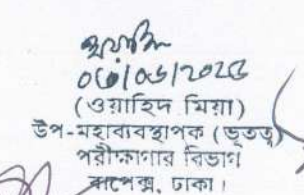 (ওয়াহিদ মিয়া)
উপ-মহাব্যবস্থাপক (ভূতত্ত্ব)
পরীক্ষাগার বিভাগ
বাপেক্স, ঢাকা।